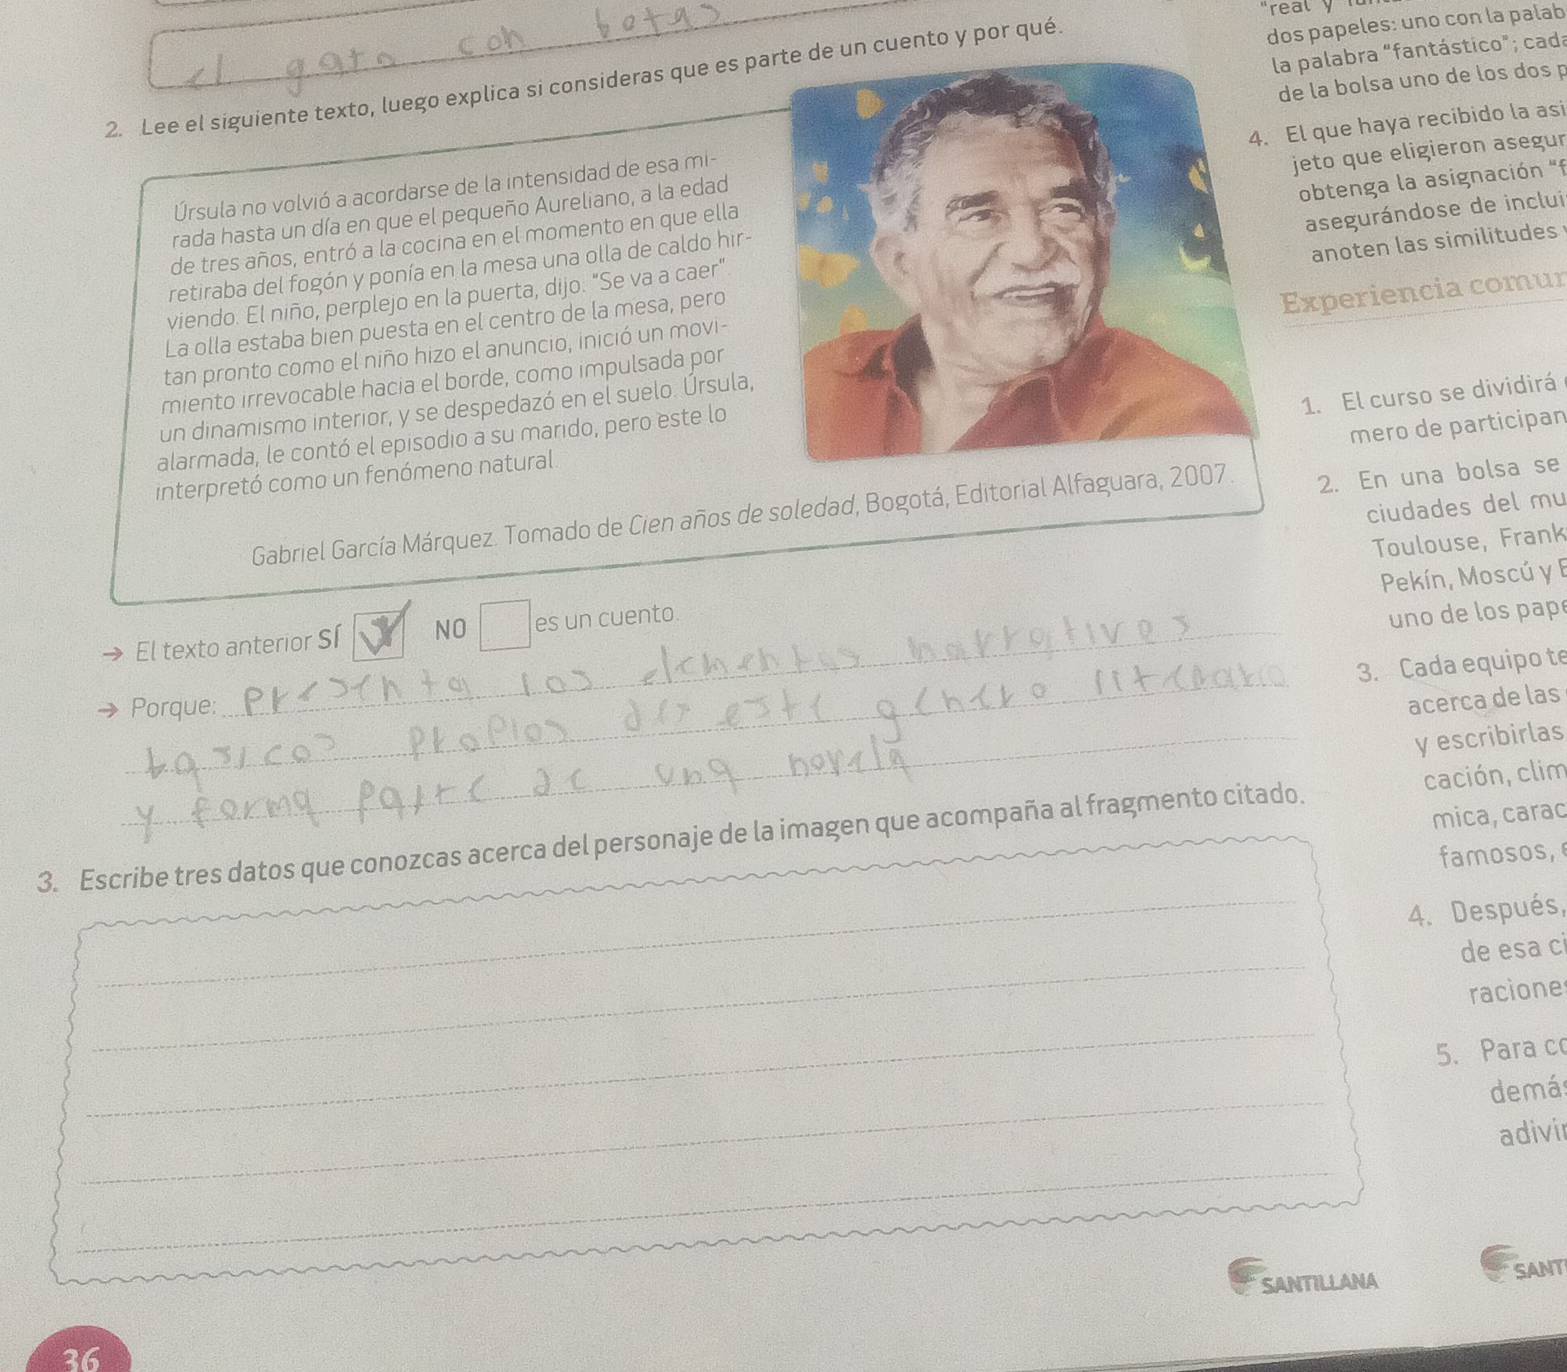 el gato con botas
2. Lee el siguiente texto, luego explica si consideras que es parte de un cuento y por qué.
Úrsula no volvió a acordarse de la intensidad de esa mi-
rada hasta un día en que el pequeño Aureliano, a la edad
de tres años, entró a la cocina en el momento en que ella
retiraba del fogón y ponía en la mesa una olla de caldo hir-
viendo. El niño, perplejo en la puerta, dijo: "Se va a caer".
La olla estaba bien puesta en el centro de la mesa, pero
tan pronto como el niño hizo el anuncio, inició un movi-
miento irrevocable hacia el borde, como impulsada por
un dinamismo interior, y se despedazó en el suelo. Úrsula,
alarmada, le contó el episodio a su marido, pero este lo
interpretó como un fenómeno natural.
Gabriel García Márquez. Tomado de Cien años de soledad, Bogotá, Editorial Alfaguara, 2007.
→ El texto anterior SÍ NO es un cuento.
→ Porque: presenta los elementos narrativos
basicos propios de este genero literario
y forma parte de una novela
3. Escribe tres datos que conozcas acerca del personaje de la imagen que acompaña al fragmento citado.
SANTILLANA
36
"real y
dos papeles: uno con la palab
la palabra "fantástico"; cada
de la bolsa uno de los dos p
4. El que haya recibido la asi
jeto que eligieron asegur
obtenga la asignación "f
asegurándose de inclui
anoten las similitudes
Experiencia comun
1. El curso se dividirá
mero de participan
2. En una bolsa se
ciudades del mu
Toulouse, Frank
Pekín, Moscú y E
uno de los pape
3. Cada equipo te
acerca de las
y escribirlas
cación, clim
mica, carac
famosos, e
4. Después,
de esa ci
racione
5. Para co
demás
adivin
SANT